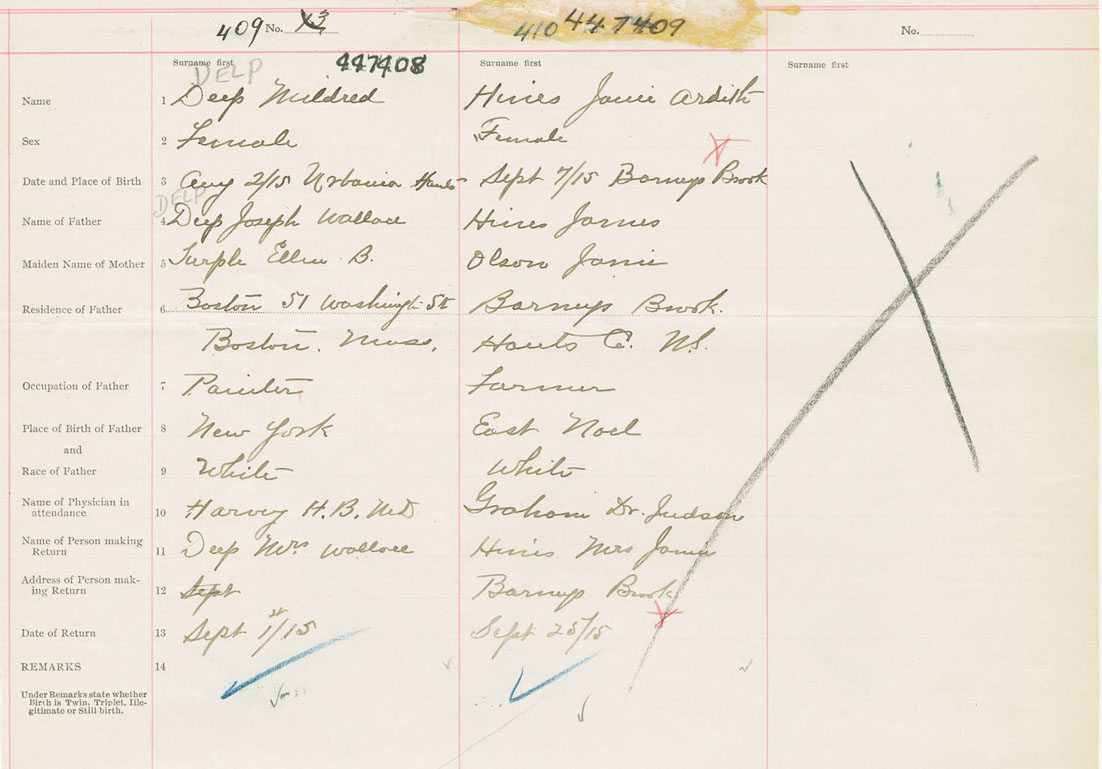 409 No. 410 447409 No.
Surname first 447408 Surname first Surname first
DELP
Name 1 Deep Mildred Hines Janie Ardith
Sex 2 Female Female
Date and Place of Birth 3 Aug 2/15 Urbania Hants Sept 7/15 Barneys Brook
DELP
Name of Father 4 Deep Joseph Wallace Hines James
Maiden Name of Mother 5 Turple Ellen B. Olson Janie
Residence of Father 6 Boston 51 Washingt St Barneys Brook.
Boston. Mass. Hants C. N.S.
Occupation of Father 7 Painter Farmer
Place of Birth of Father 8 New York East Noel
and
Race of Father 9 White White
Name of Physician in
attendance 10 Harvey H.B. M.D Graham Dr. Judson
Name of Person making
Return 11 Deep Mrs Wallace Hines Mrs James
Address of Person mak-
ing Return 12 Sept Barneys Brook
Date of Return 13 Sept 1st/15 Sept 25/15
REMARKS 14
Under Remarks state whether
Birth is Twin, Triplet, Ille-
gitimate or Still birth.